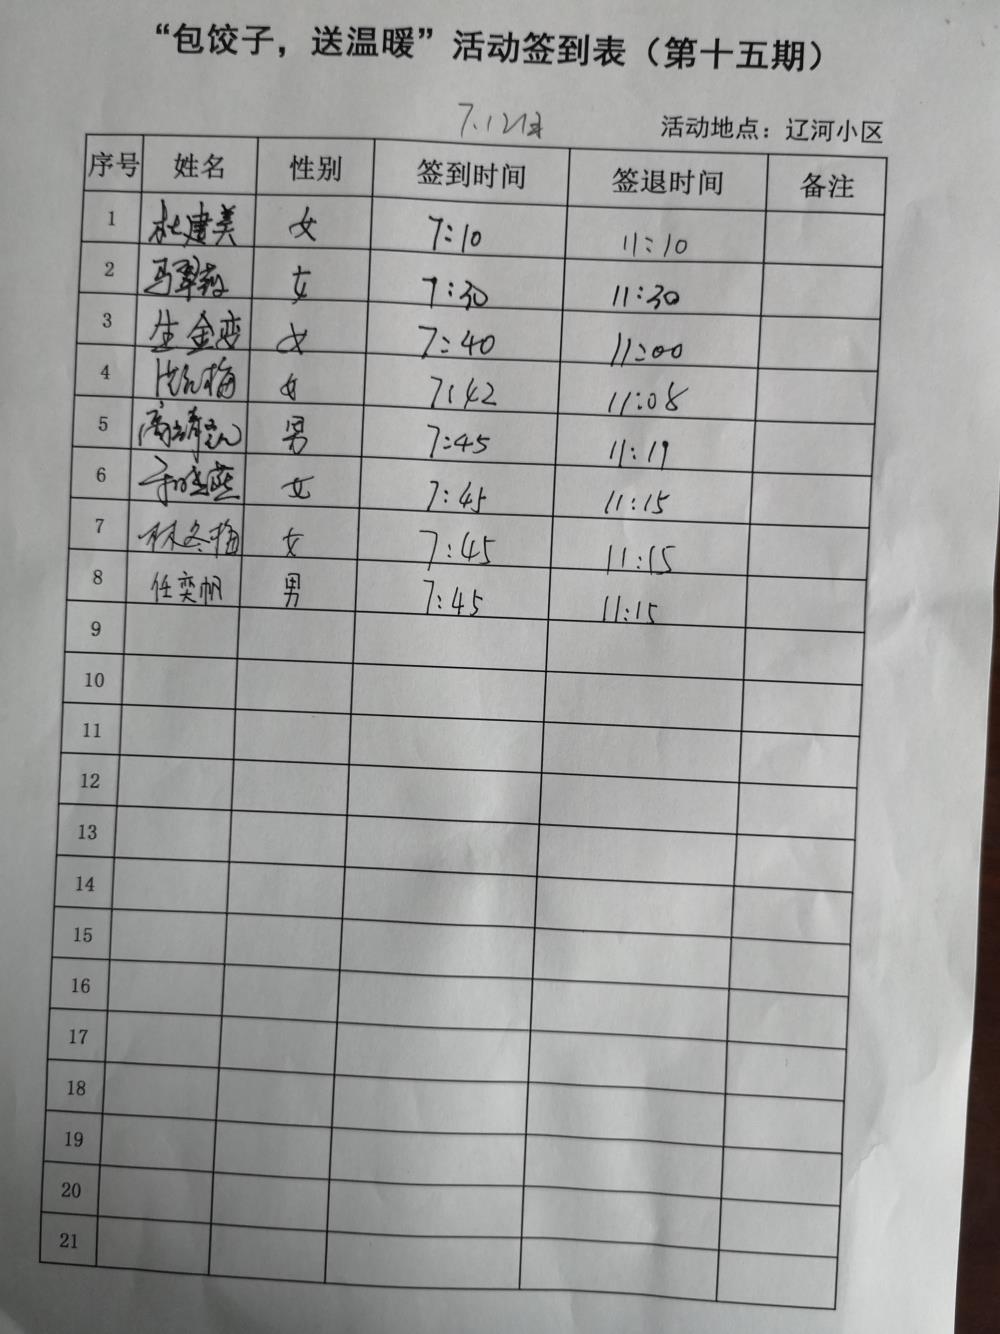 “包饺子，送温暖”活动签到表（第十五期）
7.12
活动地点：辽河小区
序号 姓名 性别 签到时间 签退时间 备注
1 杜建美 女 7:10 11:10
2 马翠 女 7:30 11:30
3 生金恋 女 7:40 11:00
4 梅 女 7:42 11:08
5 高 男 7:45 11:19
6 燕 女 7:45 11:15
7 林冬梅 女 7:45 11:15
8 任奕帆 男 7:45 11:15
9
10
11
12
13
14
15
16
17
18
19
20
21